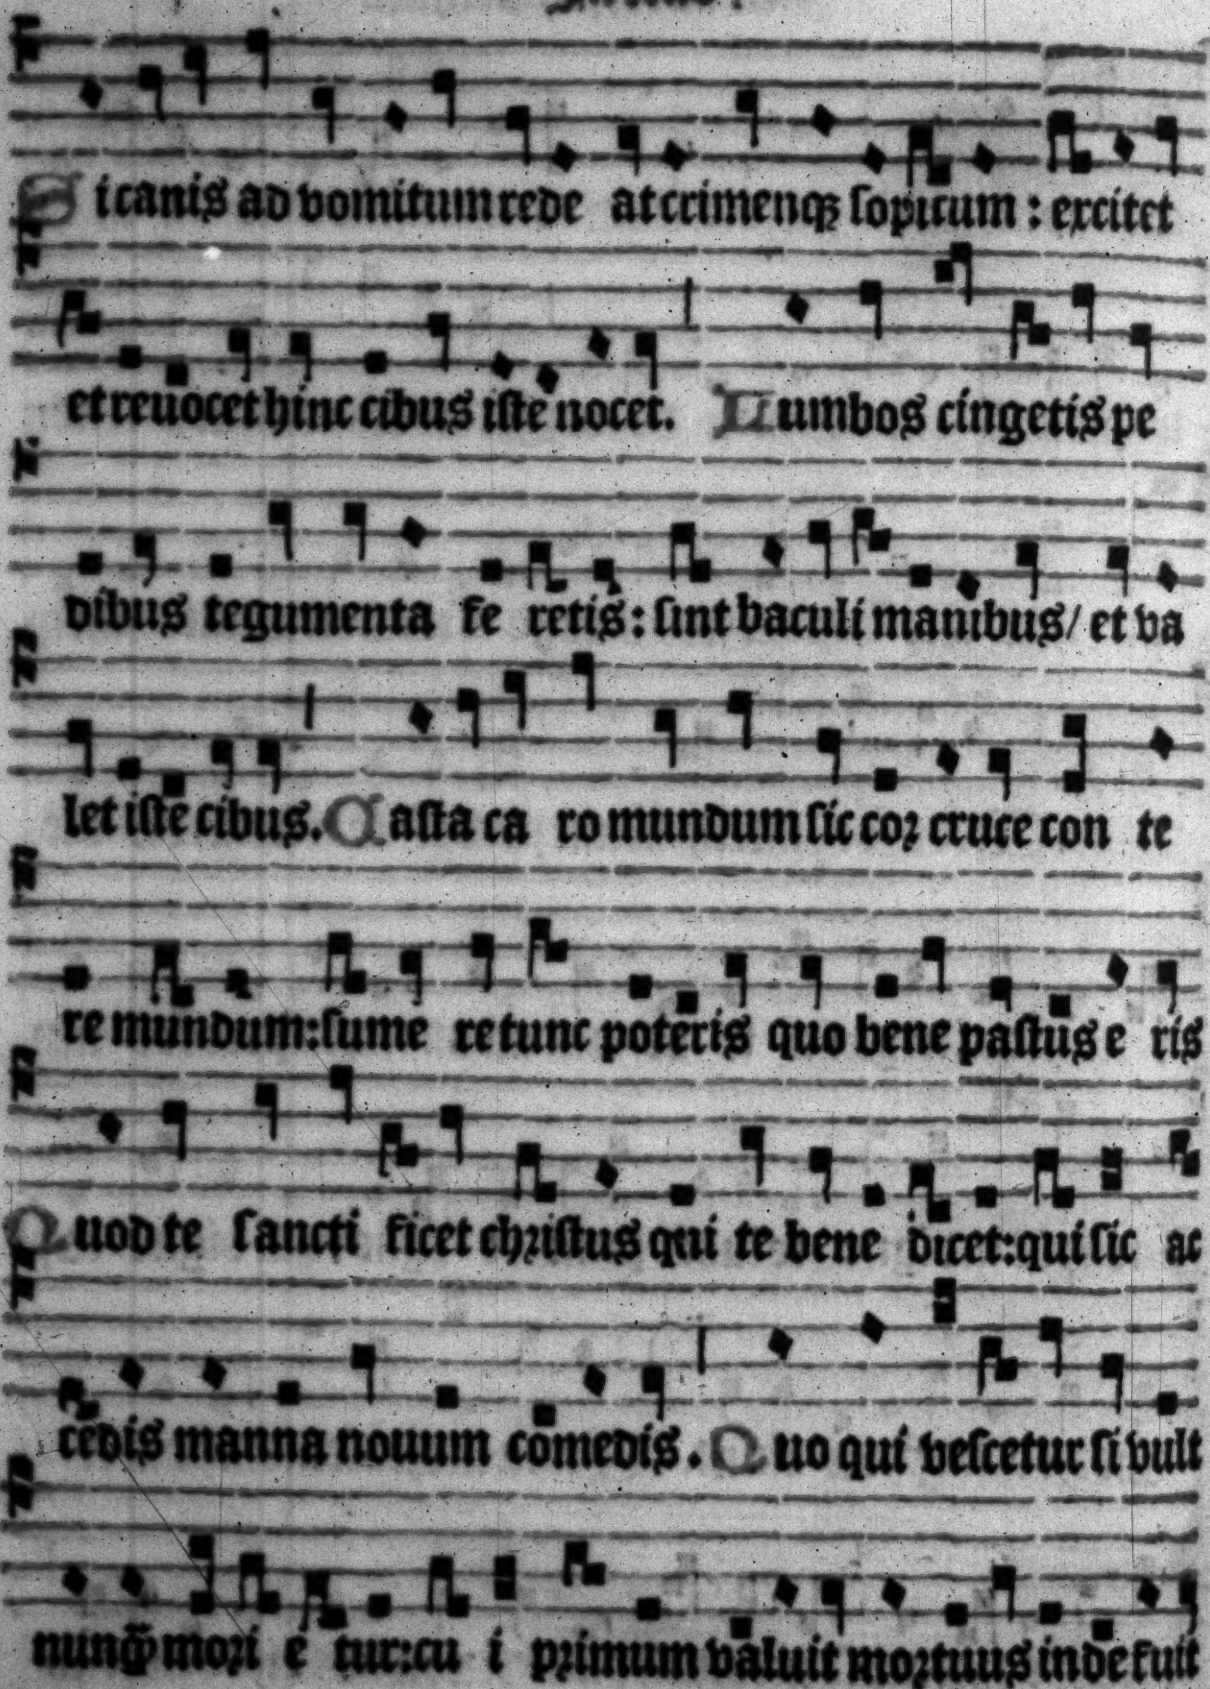 Si canis ad vomitum rede at crimenqꝫ sopitum : excitet
et reuocet hinc cibus iste nocet. Lumbos cingetis pe
dibus tegumenta fe retis : sint baculi manibus / et va
let iste cibus. Casta ca ro mundum sic cor cruce con te
re mundum : sume re tunc poteris quo bene pastus e ris
Quod te sancti ficet christus qui te bene dicet : qui sic ac
cedis manna nouum comedis . Quo qui vescetur si vult
nunq̃ mori e tur : cu i primum valuit mortuus inde fuit